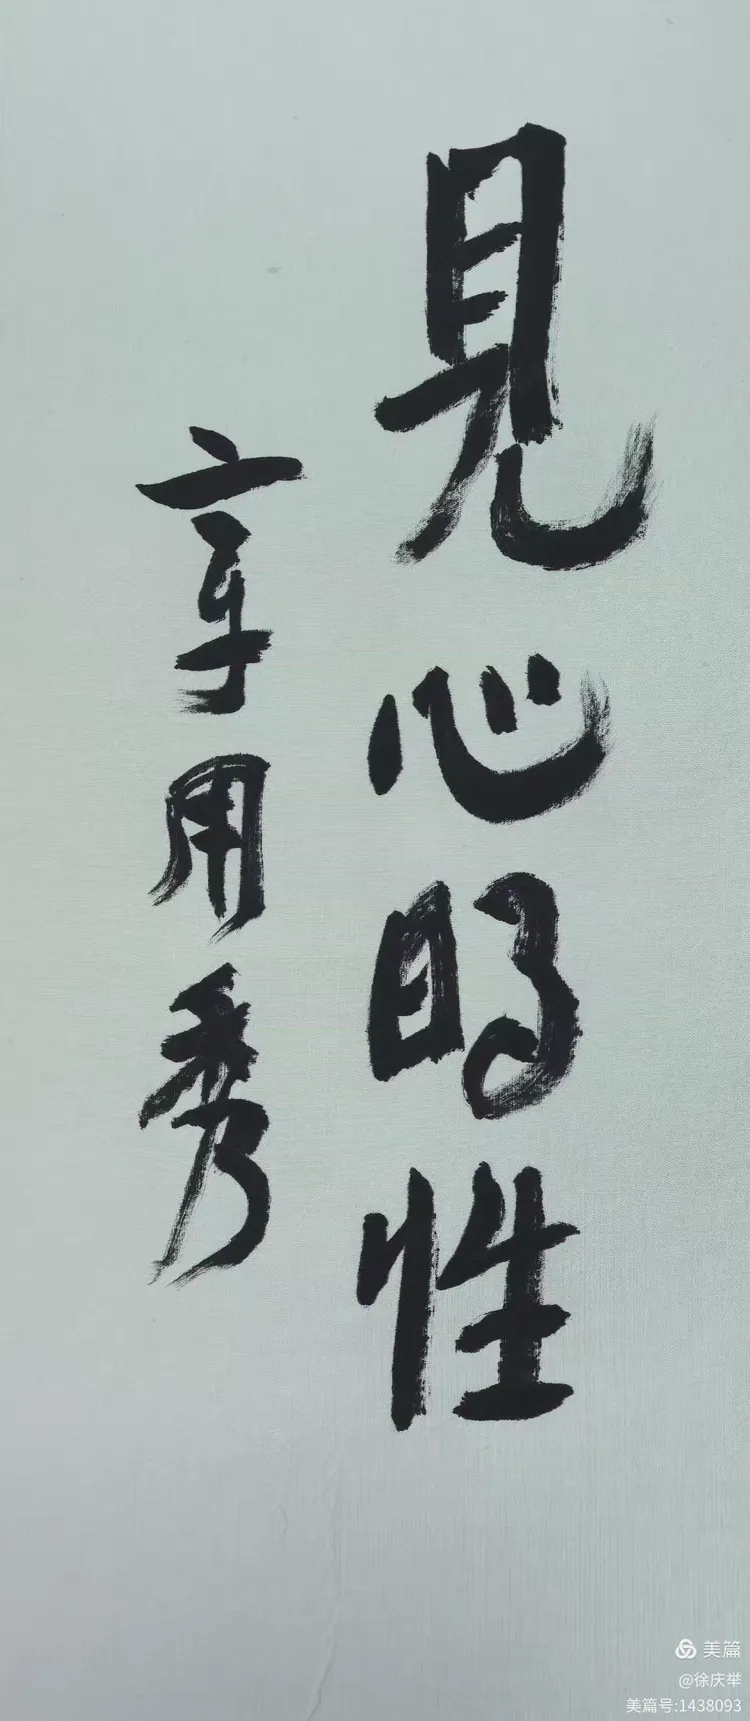 見心明性
享用秀
美篇
@徐庆举
美篇号:1438093